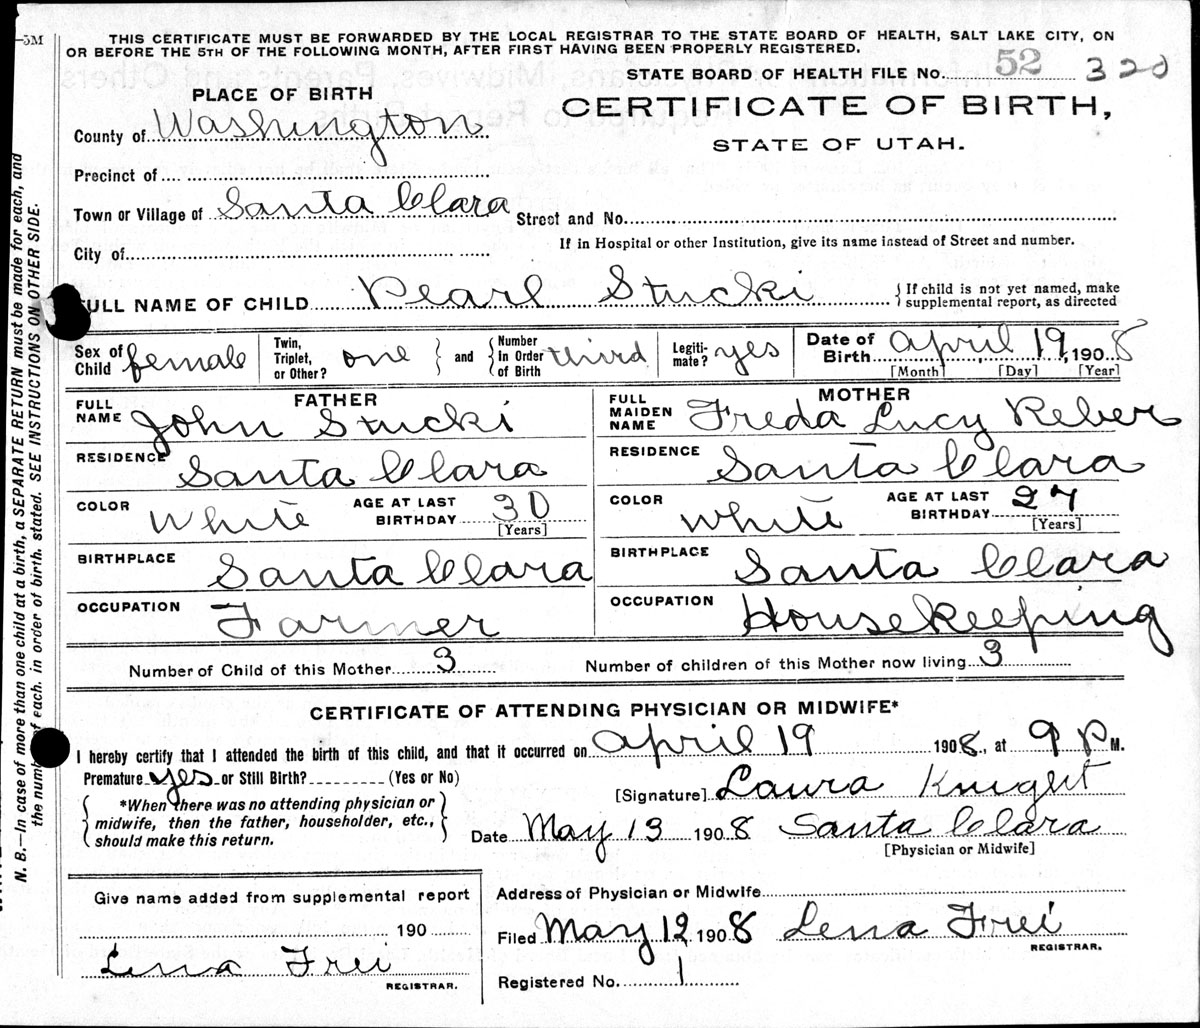 -5M
THIS CERTIFICATE MUST BE FORWARDED BY THE LOCAL REGISTRAR TO THE STATE BOARD OF HEALTH, SALT LAKE CITY, ON
OR BEFORE THE 5TH OF THE FOLLOWING MONTH, AFTER FIRST HAVING BEEN PROPERLY REGISTERED.
STATE BOARD OF HEALTH FILE No. 52 320
PLACE OF BIRTH
CERTIFICATE OF BIRTH,
STATE OF UTAH.
County of Washington
Precinct of
Town or Village of Santa Clara Street and No.
City of
If in Hospital or other Institution, give its name instead of Street and number.
FULL NAME OF CHILD Pearl Stucki { If child is not yet named, make
supplemental report, as directed
Sex of Child female Twin, Triplet, or Other? one } and { Number In Order of Birth third Legiti- mate? yes Date of Birth April 19, 1908
[Month] [Day] [Year]
FATHER MOTHER
FULL NAME John Stucki FULL MAIDEN NAME Freda Lucy Reber
RESIDENCE Santa Clara RESIDENCE Santa Clara
COLOR White AGE AT LAST BIRTHDAY 30 [Years] COLOR White AGE AT LAST BIRTHDAY 27 [Years]
BIRTHPLACE Santa Clara BIRTHPLACE Santa Clara
OCCUPATION Farmer OCCUPATION Housekeeping
Number of Child of this Mother 3 Number of children of this Mother now living 3
CERTIFICATE OF ATTENDING PHYSICIAN OR MIDWIFE*
I hereby certify that I attended the birth of this child, and that it occurred on April 19 1908, at 9 P M.
Premature yes or Still Birth? (Yes or No)
[Signature] Laura Knight
*When there was no attending physician or
midwife, then the father, householder, etc.,
should make this return.
Date May 13 1908 Santa Clara
[Physician or Midwife]
Give name added from supplemental report
190
Lena Frei
REGISTRAR.
Address of Physician or Midwife
Filed May 12 1908 Lena Frei
REGISTRAR.
Registered No. 1
N. B.—In case of more than one child at a birth, a SEPARATE RETURN must be made for each, and
the number of each, in order of birth, stated. SEE INSTRUCTIONS ON OTHER SIDE.